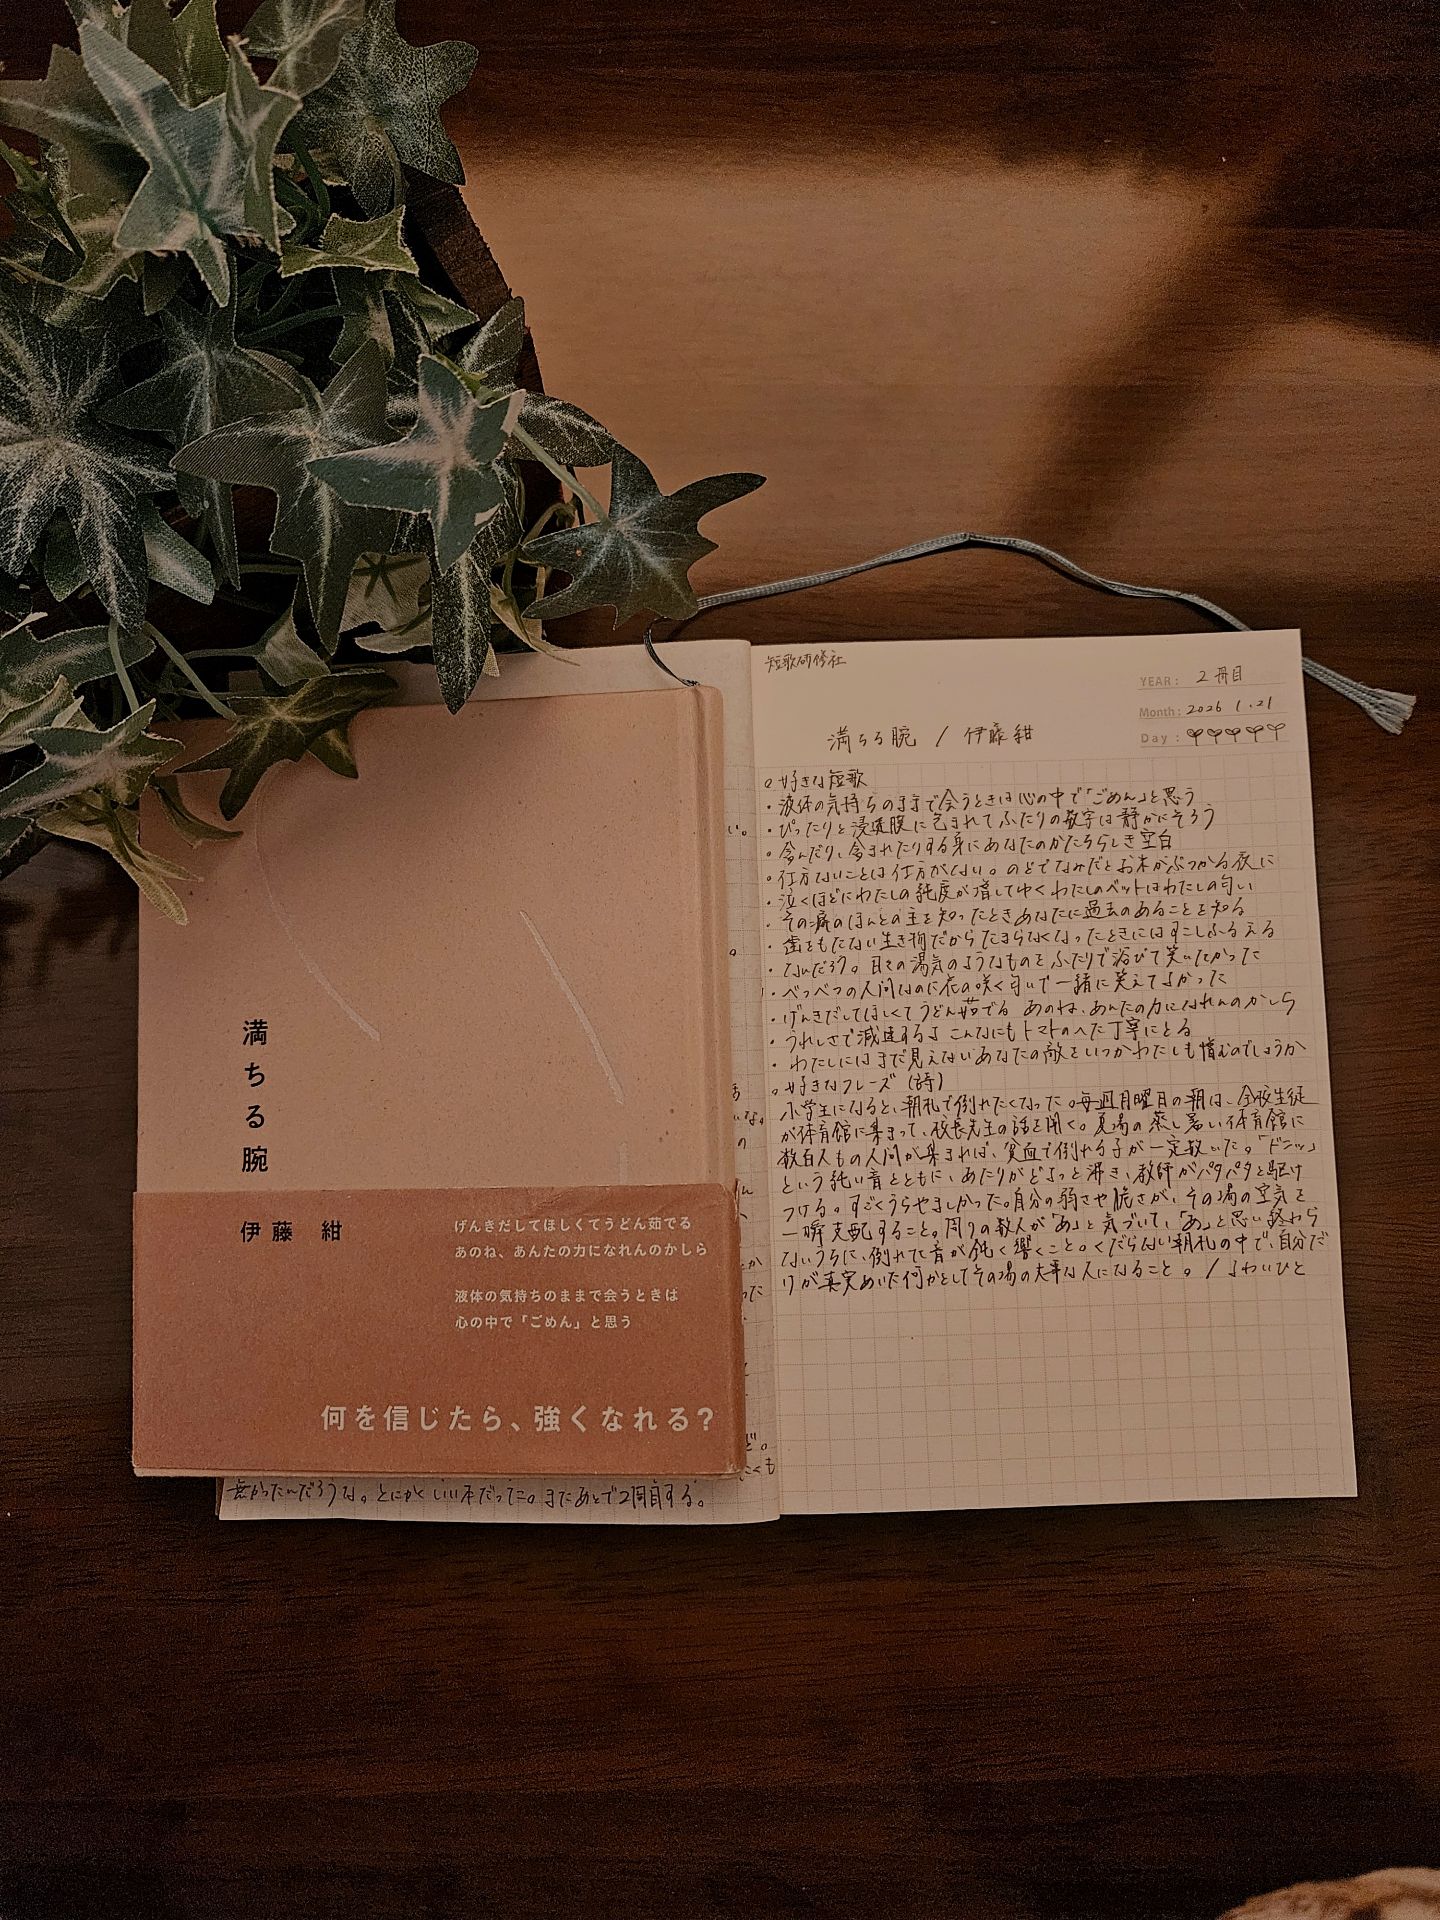 満ちる腕
伊藤 紺
げんきだしてほしくてうどん茹でる
あのね、あんたの力になれんのかしら
液体の気持ちのままで会うときは
心の中で「ごめん」と思う
何を信じたら、強くなれる?
無かったんだろうな。とにかくいい本だった。またあとで2周目する。
短歌研修社
YEAR: 2冊目
Month: 2026 1.21
Day:
満ちる腕 / 伊藤紺
。好きな短歌
・液体の気持ちのままで会うときは心の中で「ごめん」と思う
・ぴったりと浸透膜に包まれてふたりの数字は静かにそろう
・含んだり、含まれたりする身にあなたのかたちらしき空白
・仕方ないことは仕方がない。のどでなみだとお米がぶつかる夜に
・泣くほどにわたしの純度が増してゆくわたしのベットはわたしの匂い
・その癖のほんとの主を知ったときあなたに過去のあることを知る
・歯をもたない生き物だからたまらなくなったときにはすこしふるえる
・なんだろう。日々の湯気のようなものをふたりで浴びて笑いたかった
・べつべつの人間なのに花の咲く匂いで一緒に笑えてよかった
・げんきだしてほしくてうどん茹でる あのね、あんたの力になれんのかしら
・うれしさで減速するよ こんなにもトマトのへた丁寧にとる
・わたしにはまだ見えないあなたの敵をいつかわたしも憎むのでしょうか
。好きなフレーズ(詩)
小学生になると、朝礼で倒れたくなった。毎週月曜日の朝は、全校生徒
が体育館に集まって、校長先生の話を聞く。夏場の蒸し暑い体育館に
数百人もの人間が集まれば、貧血で倒れる子が一定数いた。「ドンッ」
という鈍い音とともに、あたりがどよっと沸き、教師がパタパタと駆け
つける。すごくうらやましかった。自分の弱さや脆さが、その場の空気を
一瞬支配すること。周りの数人が「あ」と気づいて、「あ」と思い終わら
ないうちに、倒れた音が鈍く響くこと。くだらない朝礼の中で、自分だ
けが真実めいた何かとしてその場の大事な人になること。/よわいひと